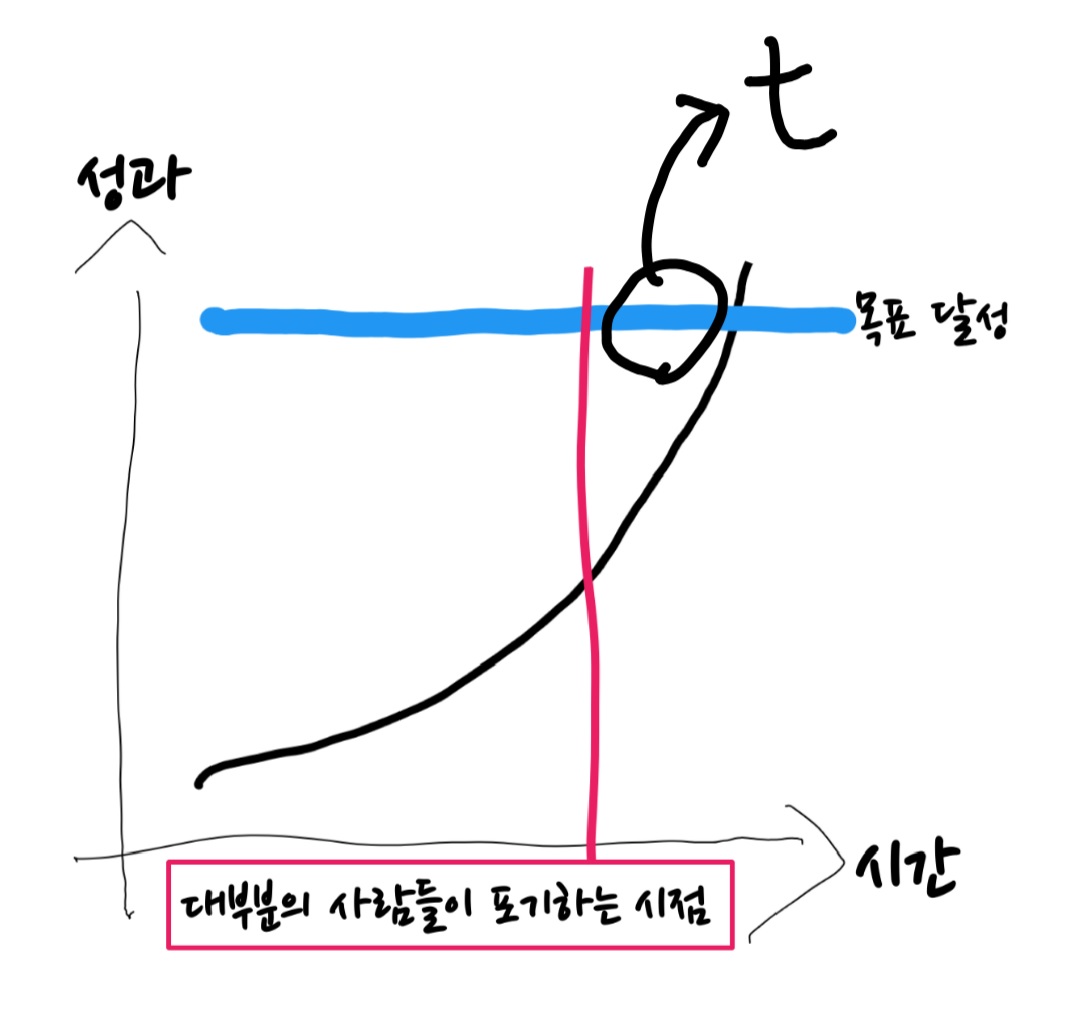 t
성과
목표 달성
시간
대부분의 사람들이 포기하는 시점